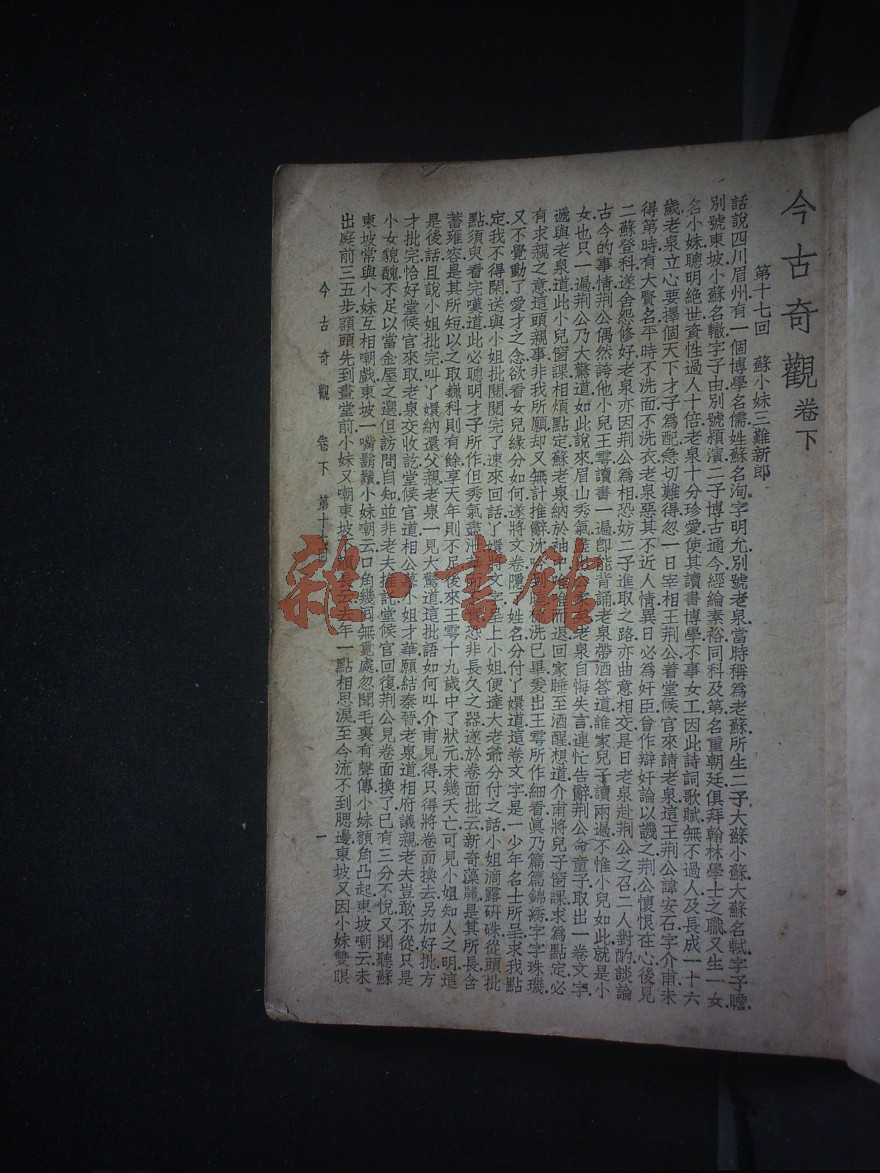 今古奇觀卷下
第十七回　蘇小妹三難新郎
話說四川眉州有一個博學名儒姓蘇名洵字明允別號老泉當時稱爲老蘇所生二子大蘇小蘇大蘇名軾字子瞻
別號東坡小蘇名轍字子由別號潁濱二子博古通今經綸素裕同科及第名重朝廷俱拜翰林學士之職又生一女
名小妹聰明絕世資性過人十倍老泉十分珍愛使其讀書博學不事女工因此詩詞歌賦無不過人及長成一十六
歲老泉立心要擇個天下才子爲配急切難得忽一日宰相王荆公着堂候官來請老泉這王荆公諱安石字介甫未
得第時有大賢名平時不洗面不洗衣老泉惡其不近人情異日必爲奸臣曾作辯奸論以譏之荆公懷恨在心後見
二蘇登科遂舍怨修好老泉亦因荆公爲相恐妨二子進取之路亦曲意相交是日老泉赴荆公之召二人對酌談論
古今的事情荆公偶然誇他小兒王雱讀書一遍卽能背誦老泉帶酒答道誰家兒子讀兩遍不惟小兒如此就是小
女也只一遍荆公乃大驚道如此說來眉山秀氣老泉自悔失言連忙告辭荆公命童子取出一卷文字
遞與老泉道此小兒窗課相煩點定蘇老泉納於袖中而退回家睡至酒醒想道介甫將兒子窗課求爲點定必
有求親之意這頭親事非我所願却又無計推辭沈洗已畢爰出王雱所作細看眞乃篇篇錦綉字字珠璣
又不覺動了愛才之念欲看女兒緣分如何遂將文卷隱姓名分付了嬛道這卷文字是一少年名士所呈求我點
定我不得閑送與小姐批閱閱完了速來回話了嬛將文字呈上小姐便達大老爺分付之話小姐滴露硏硃從頭批
點須臾看完嘆道此必聰明才子所作但秀氣盡恐非長久之器遂於卷面批云新奇藻麗是其所長含
蓄雍容是其所短以之取巍科則有餘享天年則不足後來王雱十九歲中了狀元未幾夭亡可見小姐知人之明這
是後話且說小姐批完叫了嬛納還父親老泉一見大驚道這批語如何叫介甫見得只得將卷面換去另加好批方
才批完恰好堂候官來取老泉交收訖堂候官道相公慕小姐才華願結秦晉老泉道相府議親老夫豈敢不從只是
小女貌醜不足以當金屋之選但訪問自知並非老夫推託堂候官回復荆公見卷面換了已有三分不悅又聞聽蘇
東坡常與小妹互相嘲戲東坡一嘴鬍鬚小妹嘲云口角幾回無覓處忽聞毛裏有聲傳小妹額角凸起東坡嘲云未
出庭前三五步額頭先到畫堂前小妹又嘲東坡去年一點相思淚至今流不到腮邊東坡又因小妹雙眼
今古奇觀　卷下　第十七回
一
雜·書館